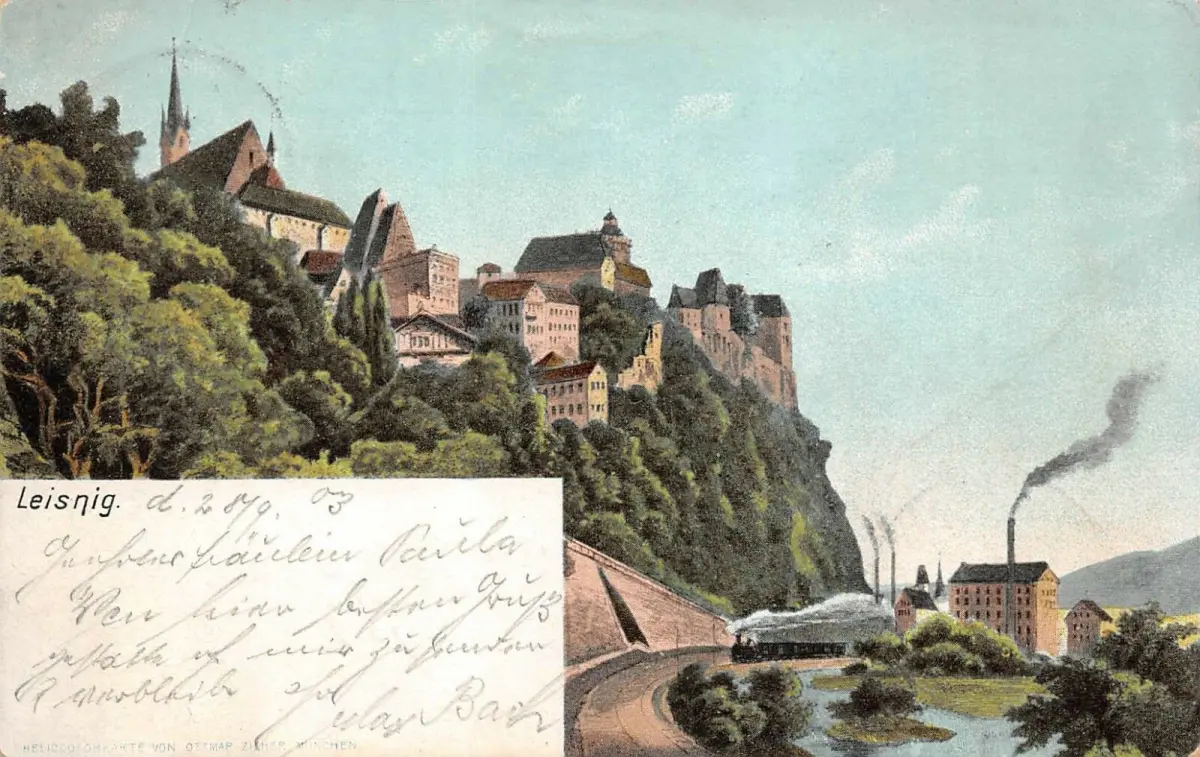 Leisnig. d. 28/9. 03
Geehrtes Fräulein Paula
Von hier besten Gruß
gestatte ich mir zu senden
& verbleibe
Max Bach
HELIOCOLORKARTE VON OTTMAR ZIEHER, MÜNCHEN